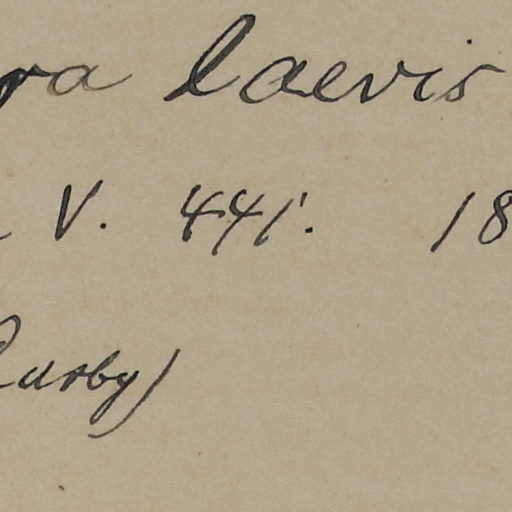 ra laevis
V. 441. 18
Rusby)